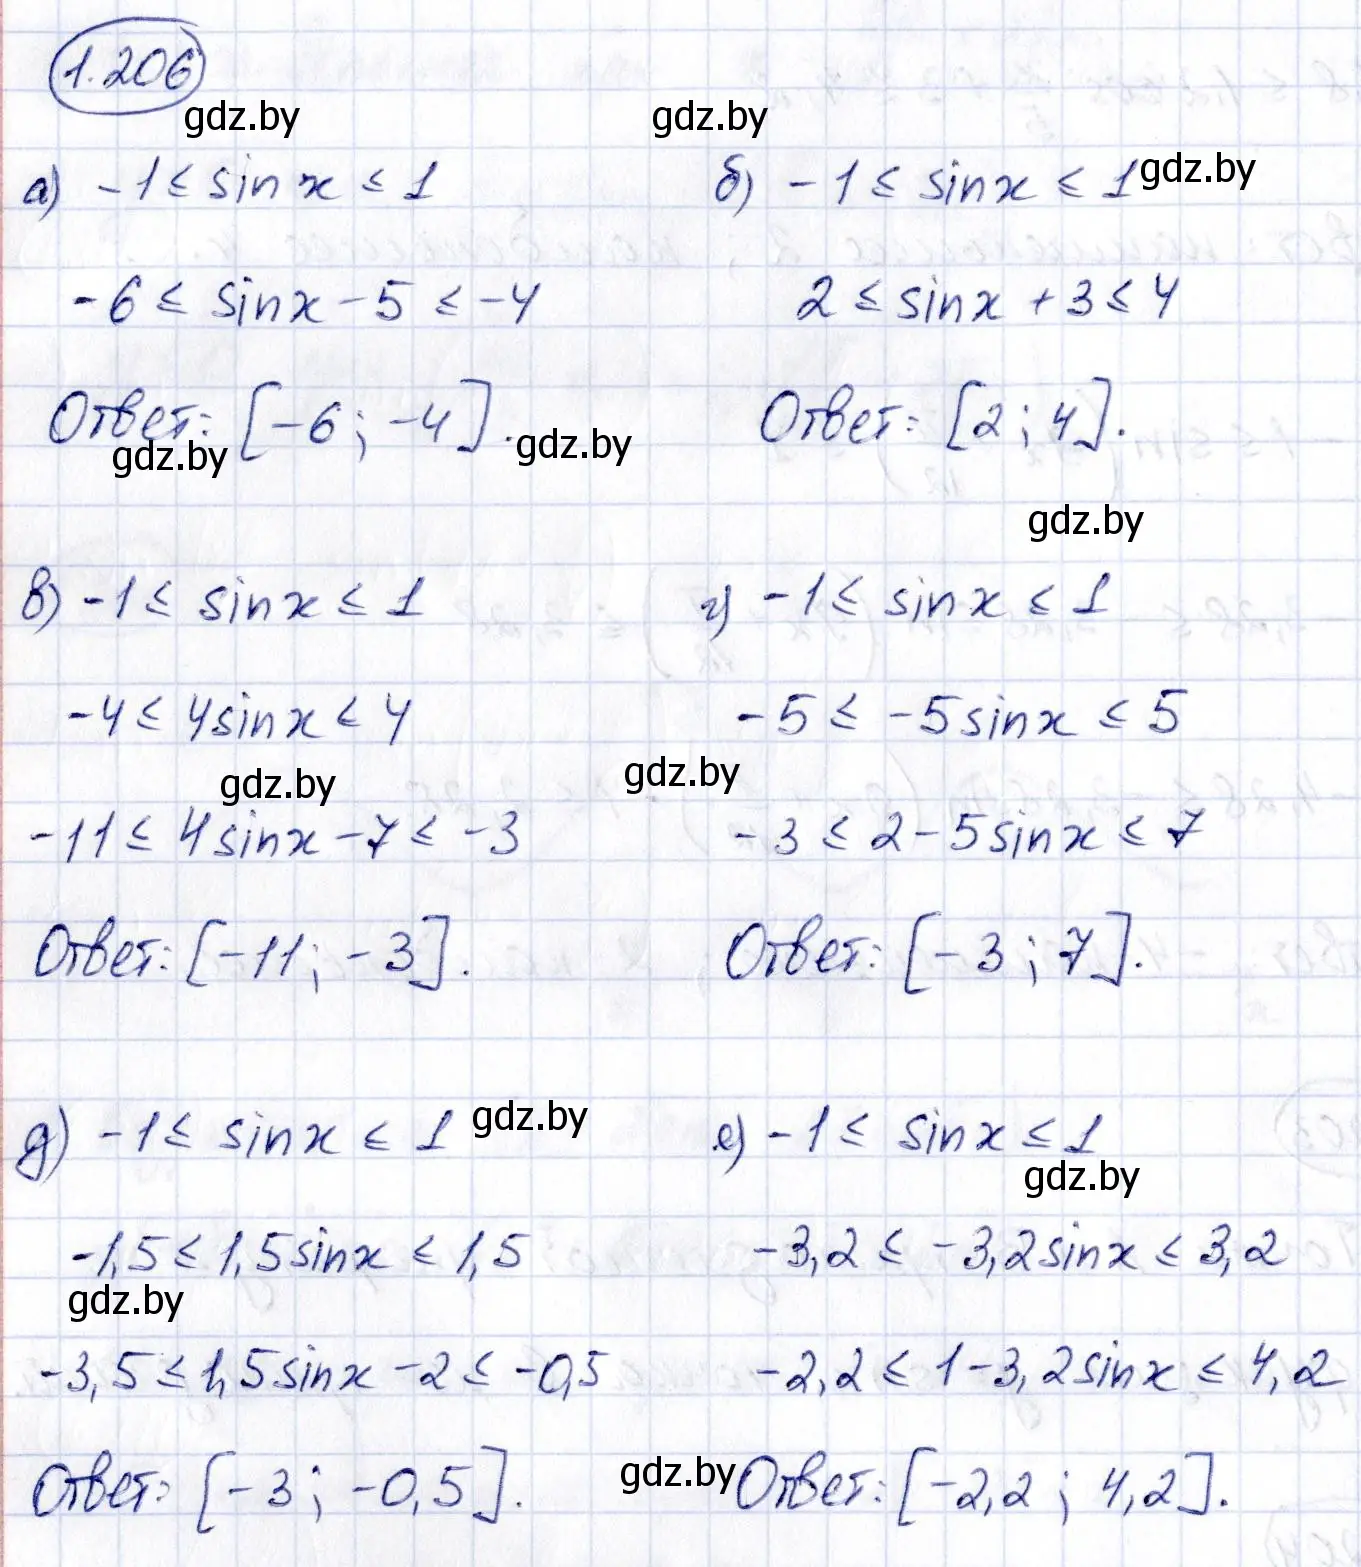 1.206
gdz.by gdz.by
а) -1 ≤ sin x ≤ 1
-6 ≤ sin x - 5 ≤ -4
Ответ: [-6; -4].
gdz.by gdz.by
б) -1 ≤ sin x ≤ 1 gdz.by
2 ≤ sin x + 3 ≤ 4
Ответ: [2; 4].
gdz.by
в) -1 ≤ sin x ≤ 1
-4 ≤ 4sin x ≤ 4
gdz.by
-11 ≤ 4sin x - 7 ≤ -3
Ответ: [-11; -3].
г) -1 ≤ sin x ≤ 1
-5 ≤ -5sin x ≤ 5
gdz.by
-3 ≤ 2 - 5sin x ≤ 7
Ответ: [-3; 7].
д) -1 ≤ sin x ≤ 1 gdz.by
-1,5 ≤ 1,5sin x ≤ 1,5
gdz.by
-3,5 ≤ 1,5sin x - 2 ≤ -0,5
Ответ: [-3; -0,5].
е) -1 ≤ sin x ≤ 1
gdz.by
-3,2 ≤ -3,2sin x ≤ 3,2
-2,2 ≤ 1 - 3,2sin x ≤ 4,2
gdz.by
Ответ: [-2,2; 4,2].